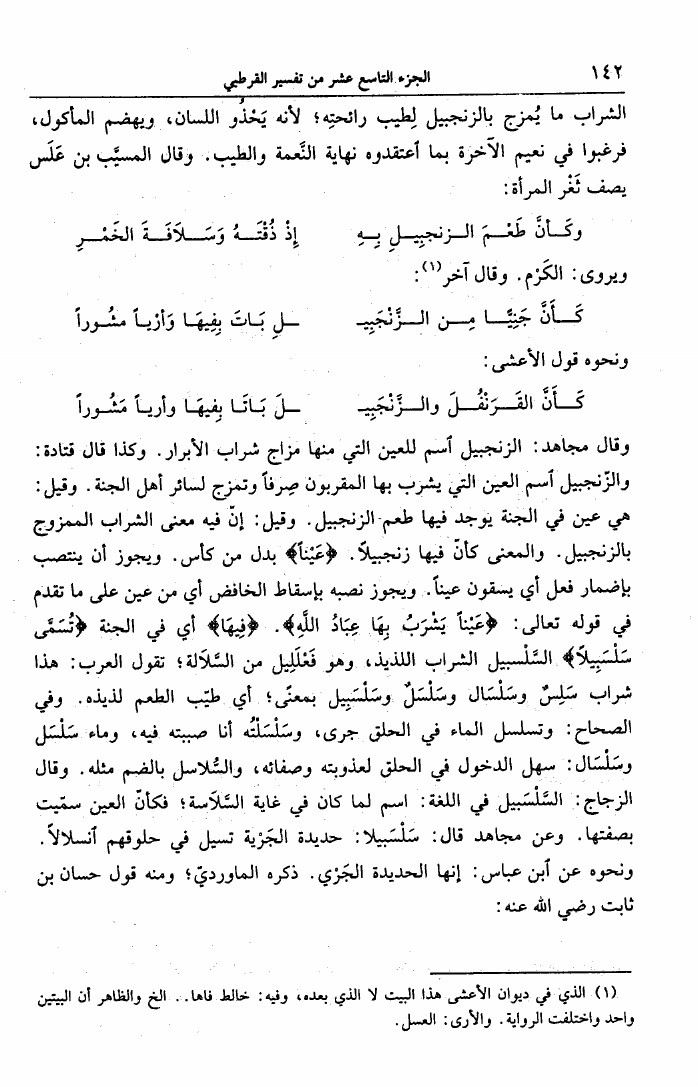 ١٤٢ الجزء التاسع عشر من تفسير القرطبي
الشراب ما يُمزج بالزنجبيل لِطيب رائحتِه؛ لأنه يَحْذُو اللسان، ويهضم المأكول،
فرغبوا في نعيم الآخرة بما ٱعتقدوه نهاية النَّعمة والطيب. وقال المسيَّب بن عَلَس
يصف ثَغْر المرأة:
وكَـأنَّ طَعْـمَ الـزنجبيـلِ بِـهِ إِذْ ذُقْتَـهُ وَسَـلاَفَـةَ الخَمْـرِ
ويروى: الكَرْم. وقال آخر(١):
كَـأَنَّ جَنِيًّـا مِـن الـزَّنْجَبِيـ ـلِ بَـاتَ بِفِيهَـا وَأرْيـاً مشُـوراً
ونحوه قول الأعشى:
كَـأَنَّ القَـرَنْفُـلَ والـزَّنْجَبِيـ ـلَ بَـاتَـا بِفيهَـا وأرياً مَشُـوراً
وقال مجاهد: الزنجبيل ٱسم للعين التي منها مزاج شراب الأبرار. وكذا قال قتادة:
والزّنجبيل ٱسم العين التي يشرب بها المقربون صِرفاً وتمزج لسائر أهل الجنة. وقيل:
هي عين في الجنة يوجد فيها طعم الزنجبيل. وقيل: إنّ فيه معنى الشراب الممزوج
بالزنجبيل. والمعنى كأنّ فيها زنجبيلاً. ﴿عَيْناً﴾ بدل من كأس. ويجوز أن ينتصب
بإضمار فعل أي يسقون عيناً. ويجوز نصبه بإسقاط الخافض أي من عين على ما تقدم
في قوله تعالى: ﴿عَيْناً يَشْرَبُ بِهَا عِبَادُ اللَّهِ﴾. ﴿فِيهَا﴾ أي في الجنة ﴿تُسَمَّى
سَلْسَبِيلاً﴾ السَّلْسبيل الشراب اللذيذ، وهو فَعْلَلِيل من السَّلالة؛ تقول العرب: هذا
شراب سَلِسٌ وسَلْسَال وسَلْسَلٌ وسَلْسَبِيل بمعنًى؛ أي طيّب الطعم لذيذه. وفي
الصحاح: وتسلسل الماء في الحلق جرى، وسَلْسَلْتُه أنا صببته فيه، وماء سَلْسَل
وسَلْسَال: سهل الدخول في الحلق لعذوبته وصفائه، والسُّلاسل بالضم مثله. وقال
الزجاج: السَّلْسَبيل في اللغة: اسم لما كان في غاية السَّلاَسة؛ فكأنّ العين سمّيت
بصفتها. وعن مجاهد قال: سَلْسَبيلا: حديدة الجَرْية تسيل في حلوقهم ٱنسلالاً.
ونحوه عن ٱبن عباس: إنها الحديدة الجَرْي. ذكره الماورديّ؛ ومنه قول حسان بن
ثابت رضي الله عنه:
(١) الذي في ديوان الأعشى هذا البيت لا الذي بعده، وفيه: خالط فاها.. الخ والظاهر أن البيتين
واحد واختلفت الرواية. والأرى: العسل.